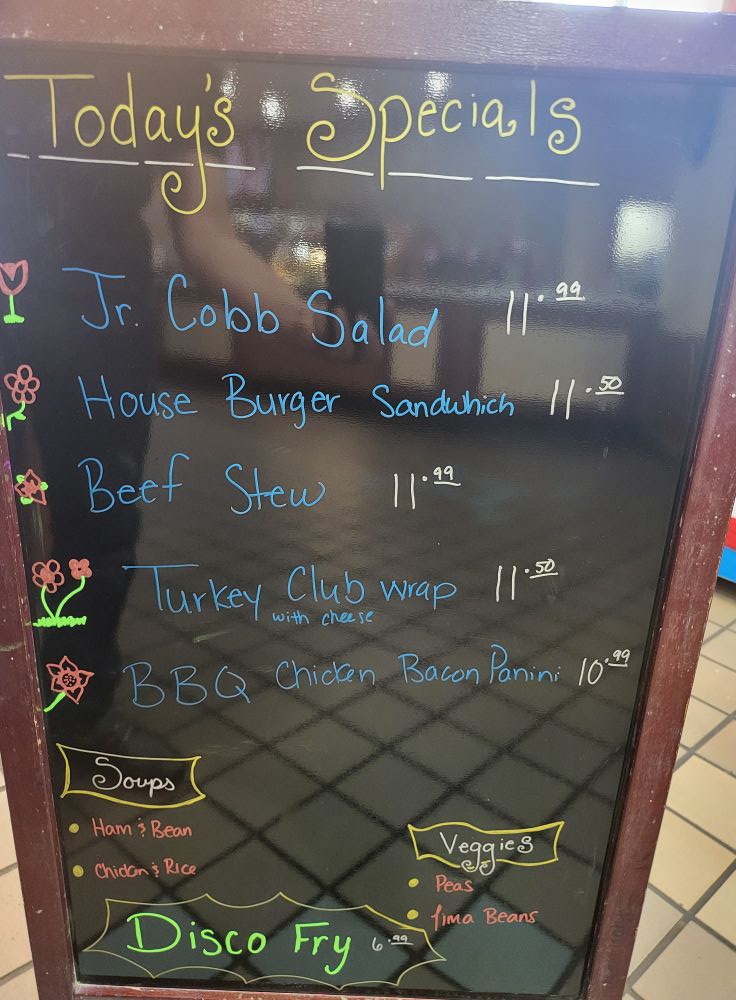 Today's Specials
Jr. Cobb Salad 11.99
House Burger Sandwhich 11.50
Beef Stew 11.99
Turkey Club wrap 11.50
with cheese
BBQ Chicken Bacon Panini 10.99
Soups
• Ham & Bean
• Chicken & Rice
Veggies
• Peas
• Lima Beans
Disco Fry 6.99